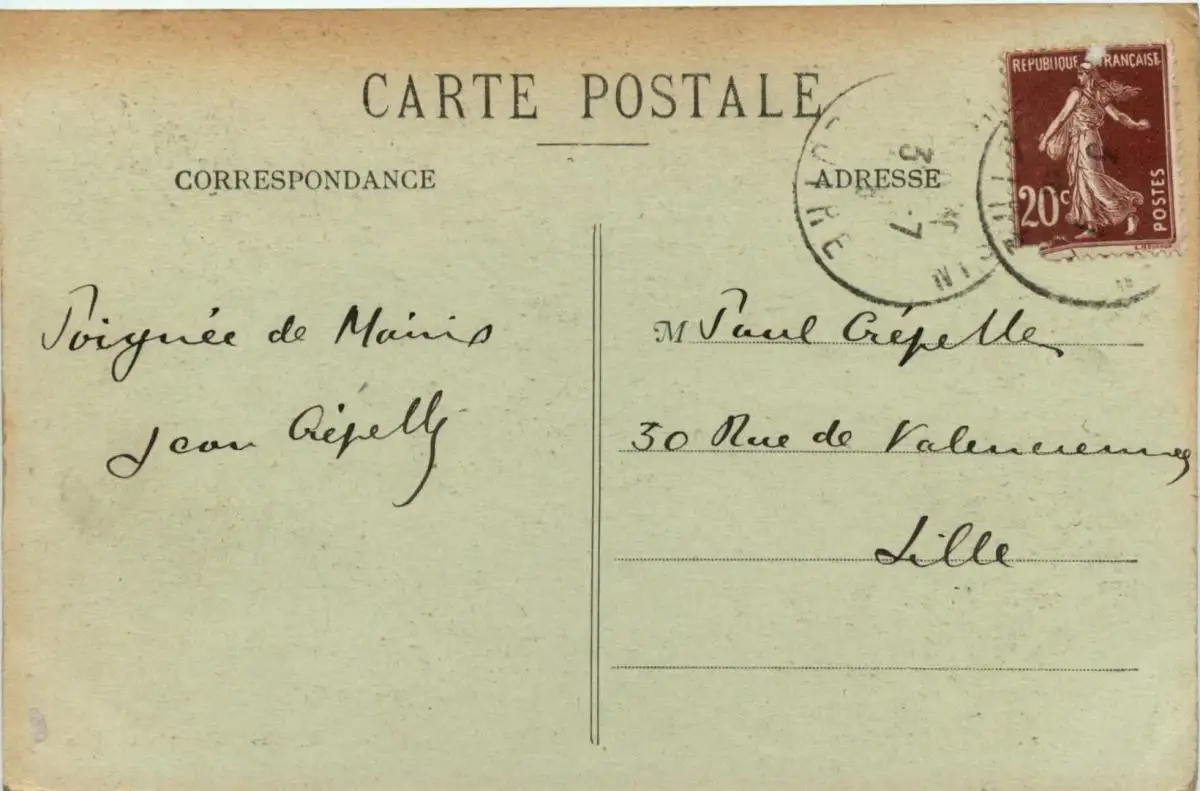 CARTE POSTALE
CORRESPONDANCE
ADRESSE
RÉPUBLIQUE FRANÇAISE
20c
POSTES
Poignée de Mains
Jean Crépelle
M Paul Crépelle
30 Rue de Valenciennes
Lille